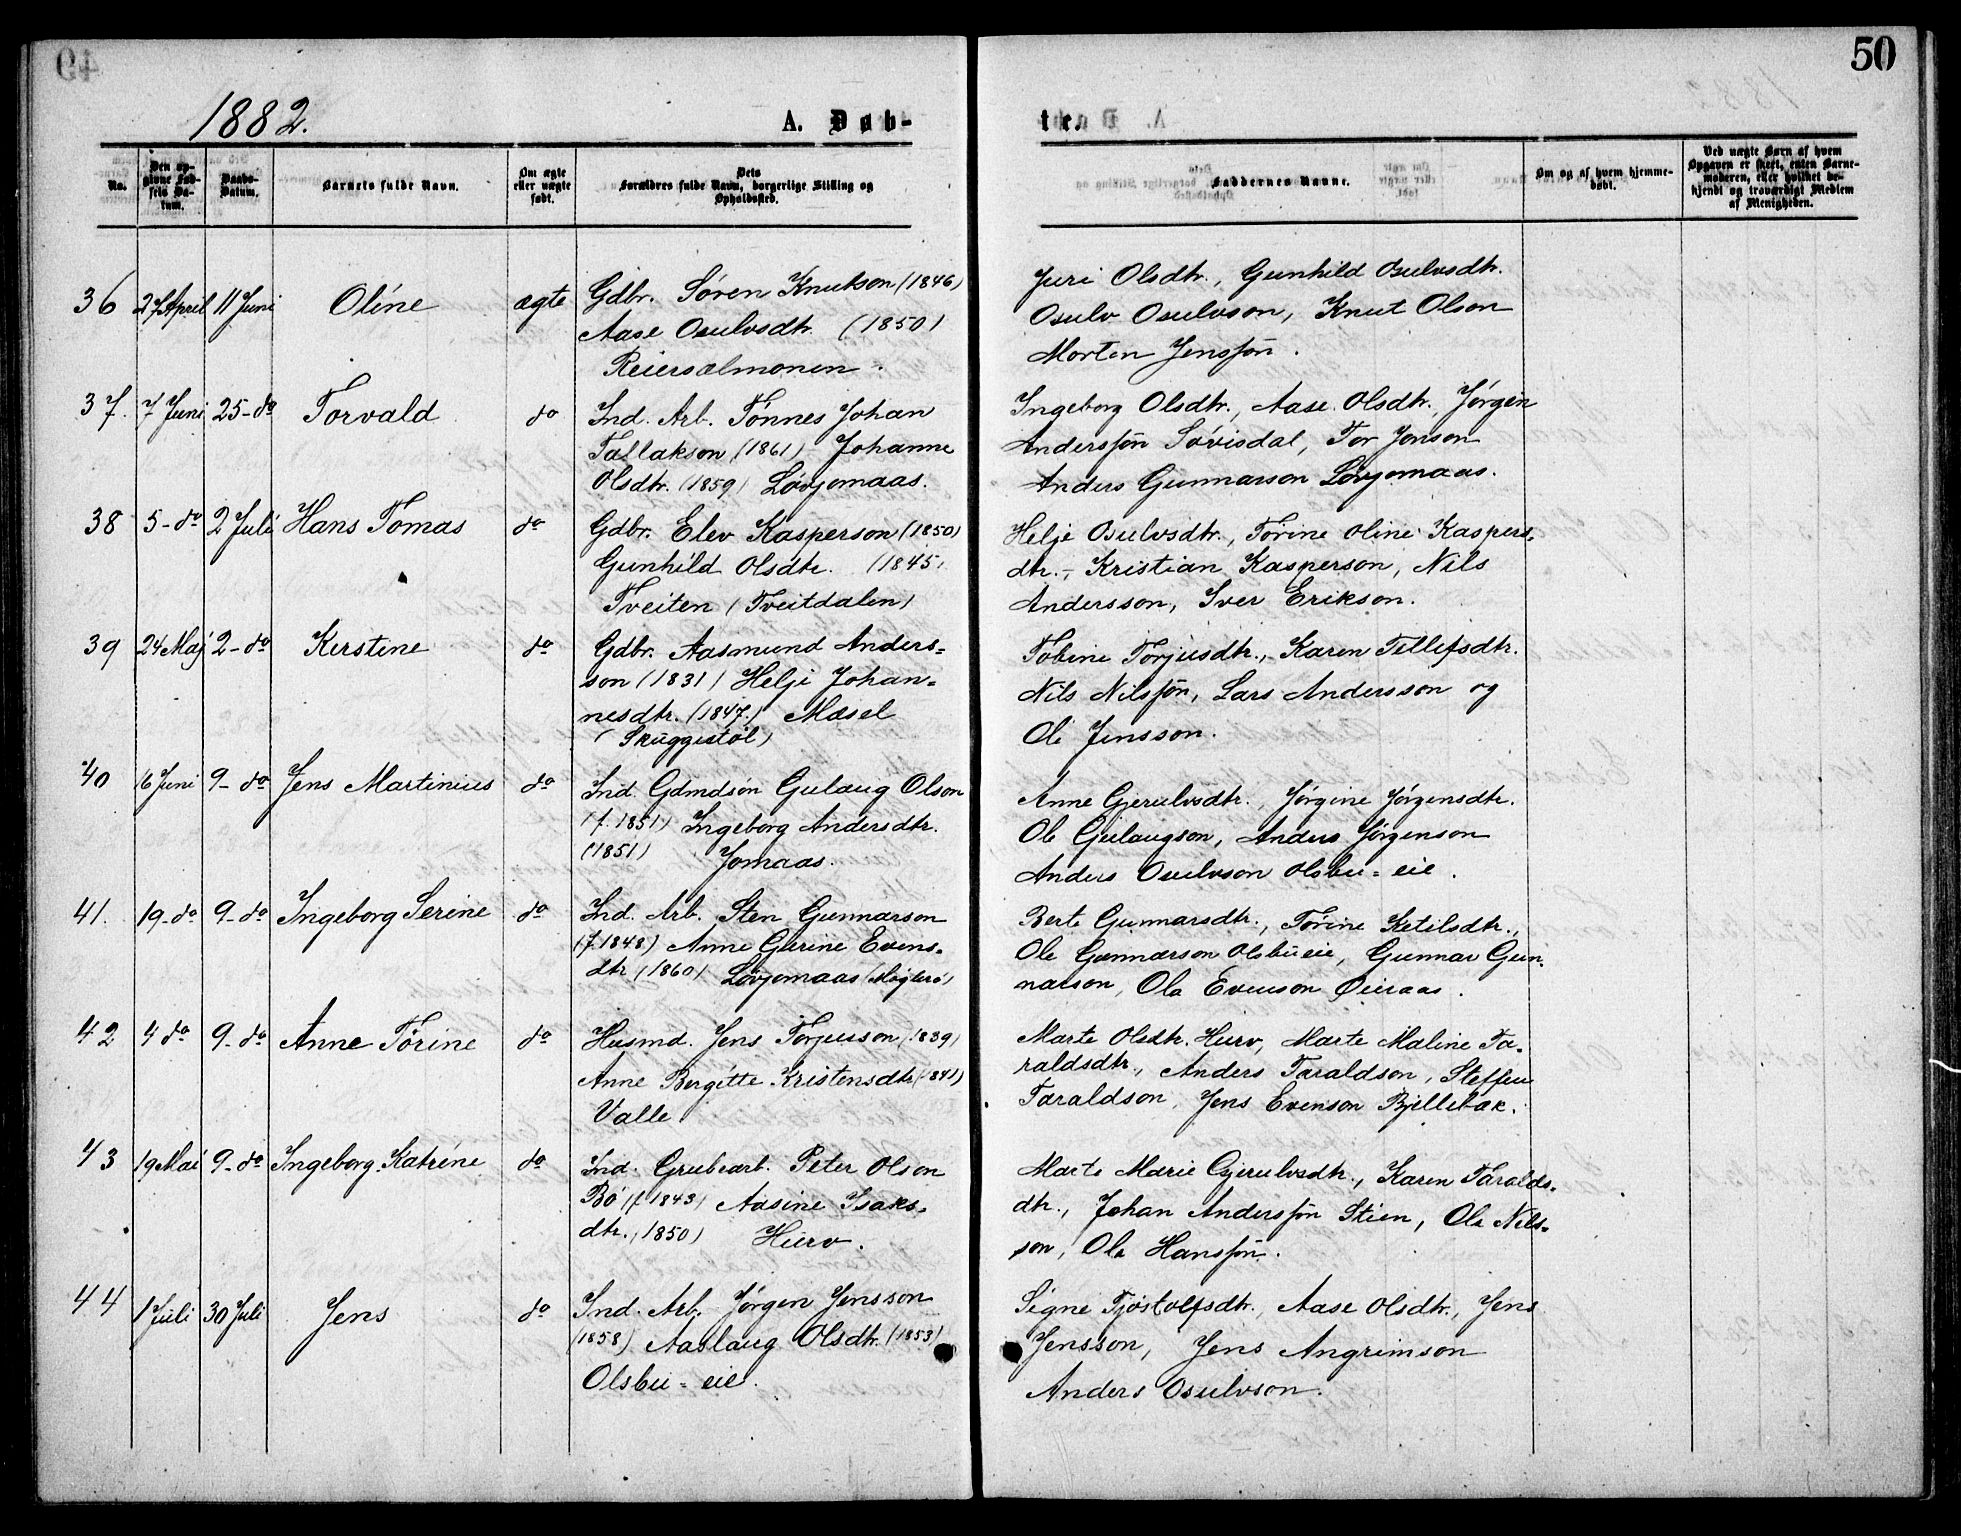 50
1882.
A. Døb-
te.
No.
Den op-
givne Fød-
sels Da-
tum.
Daabs-
Datum.
Barnets fulde Navn.
Om ægte
eller uægte
født.
Dets
Forældres fulde Navn, borgerlige Stilling og
Opholdssted.
Faddernes Navne.
Om og af hvem hjemme-
døbt.
Ved uægte Børn af hvem
Opgaven er skeet, enten Barne-
moderen, eller hvilket be-
kjendt og troværdigt Medlem
af Menigheden.
36 27 April 11 Juni Oline ægte Gdbr. Søren Knutson (1846)
Aase Osulvsdtr. (1850)
Reiersølmonen.
Juri Olsdtr., Gunhild Osulvsdtr.
Osulv Osulvson, Knut Olson
Morten Jensføn.
37. 7 Juni 25-do Torvald do Ind. Arb. Tønnes Johan
Tallakson (1861) Johanne
Olsdtr. (1859) Løvjomaas.
Ingeborg Olsdtr., Aase Olsdtr., Jørgen
Andersføn Løvisdal, Tor Jonson
Anders Gunnarson Løvjomaas.
38 5-do 2 Juli Hans Tomas do Gdbr. Elev Kasperson (1850)
Gunhild Olsdtr. (1845)
Tveiten (Tveitdalen)
Helje Osulvsdtr., Tørine Oline Kaspers-
dtr., Kristian Kasperson, Nils
Andersson, Iver Erikson.
39 24 Maj 2-do Kerstine do Gdbr. Aasmund Anders=
son (1831) Helje Johan=
nesdtr. (1847.) Mæsel
(Skuggestøl)
Tobine Torjusdtr., Karen Tellefsdtr.
Nils Nilsføn, Lars Andersson og
Ole Jensson.
40 16 Juni 9-do Jens Martinius do Ind. Gdmdsøn Gulaug Olson
(f. 1851) Ingeborg Andersdtr.
(1851) Jomaas.
Anne Gjerulvsdtr., Jørgine Jørgensdtr.
Ole Gulaugson, Anders Jørgenson
Anders Osulvson Olsbu=eie.
41. 19-do 9-do Ingeborg Serine do Ind. Arb. Sten Gunnarson
(f. 1848) Anne Gurine Evens-
dtr (1860) Løvjomaas
Berte Gunnarsdtr., Tørine Ketilsdtr.,
Ole Gunnarson Olsbueie, Gunnar Gun-
narson, Ola Evenson Øieraas.
42 4 do 9-do Anne Tørine do Husmd. Jens Torjusson (1839)
Anne Bergitte Kristensdtr (1841)
Valle
Marte Olsdtr. Hurv, Marte Maline Ta-
raldsdtr., Anders Taraldson, Steffen
Taraldson, Jens Evenson Bjellebæk.
43 19 Mai 9-do Ingeborg Katrine do Ind. Grubearb. Peter Olson
Bø (f. 1843) Aasine Isaks-
dtr. (1850) Hurv.
Marte Marie Gjerulvsdtr., Karen Taralds-
dtr., Johan Andersføn Stien, Ole Nils-
son, Ole Hansføn.
44 1 Juli 30 Juli Jens do Ind. Arb. Jørgen Jensson
(1858) Aaslaug Olsdtr. (1853)
Olsbu=eie.
Signe Tjøstolfsdtr., Aase Olsdtr., Jens
Jensson, Jens Angrimson
Anders Osulvson.